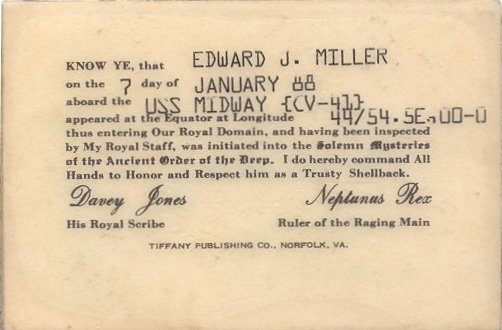 KNOW YE, that EDWARD J. MILLER
on the 7 day of JANUARY 88
aboard the USS MIDWAY {CV-41}
appeared at the Equator at Longitude 44/54.5E,00-0
thus entering Our Royal Domain, and having been inspected
by My Royal Staff, was initiated into the Solemn Mysteries
of the Ancient Order of the Deep. I do hereby command All
Hands to Honor and Respect him as a Trusty Shellback.
Davey Jones Neptunus Rex
His Royal Scribe Ruler of the Raging Main
TIFFANY PUBLISHING CO., NORFOLK, VA.